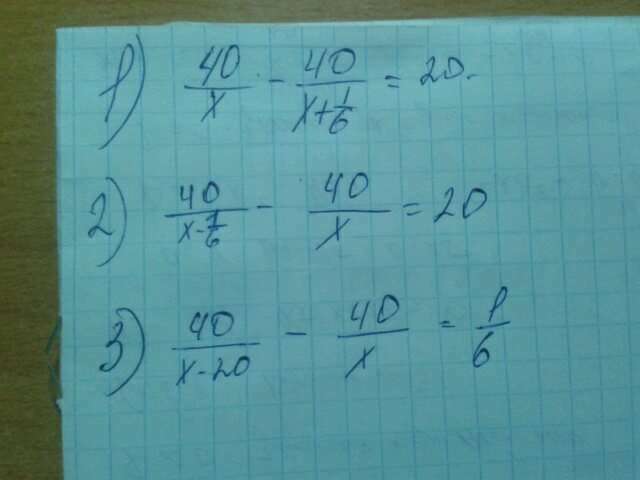 1) 40/x - 40/(x+1/6) = 20.
2) 40/(x-1/6) - 40/x = 20
3) 40/(x-20) - 40/x = 1/6